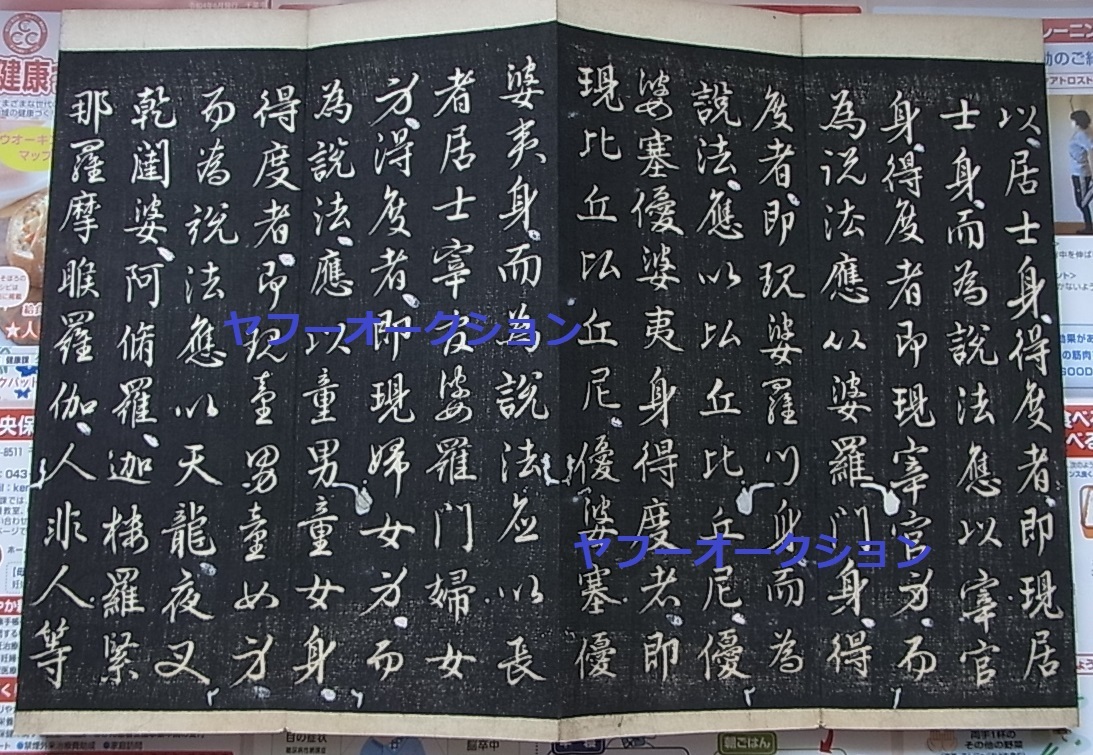 以居士身得度者即現居
士身而為說法應以宰官
身得度者即現宰官身而
為説法應以婆羅門身得
度者即現婆羅門身而為
說法應以比丘比丘尼優
婆塞優婆夷身得度者即
現比丘比丘尼優婆塞優
婆夷身而為說法應以長
者居士宰官婆羅門婦女
身得度者即現婦女身而
為說法應以童男童女身
得度者即現童男童女身
而為説法應以天龍夜叉
乾闥婆阿脩羅迦楼羅緊
那羅摩睺羅伽人非人等
ヤフーオークション
ヤフーオークション
健康
ウオーキ
マップ
脳卒中
朝ごはん
両手1杯の
その他の野菜